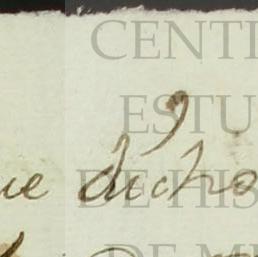 CENT
ESTU
DE HIS
DE M
ue dicho